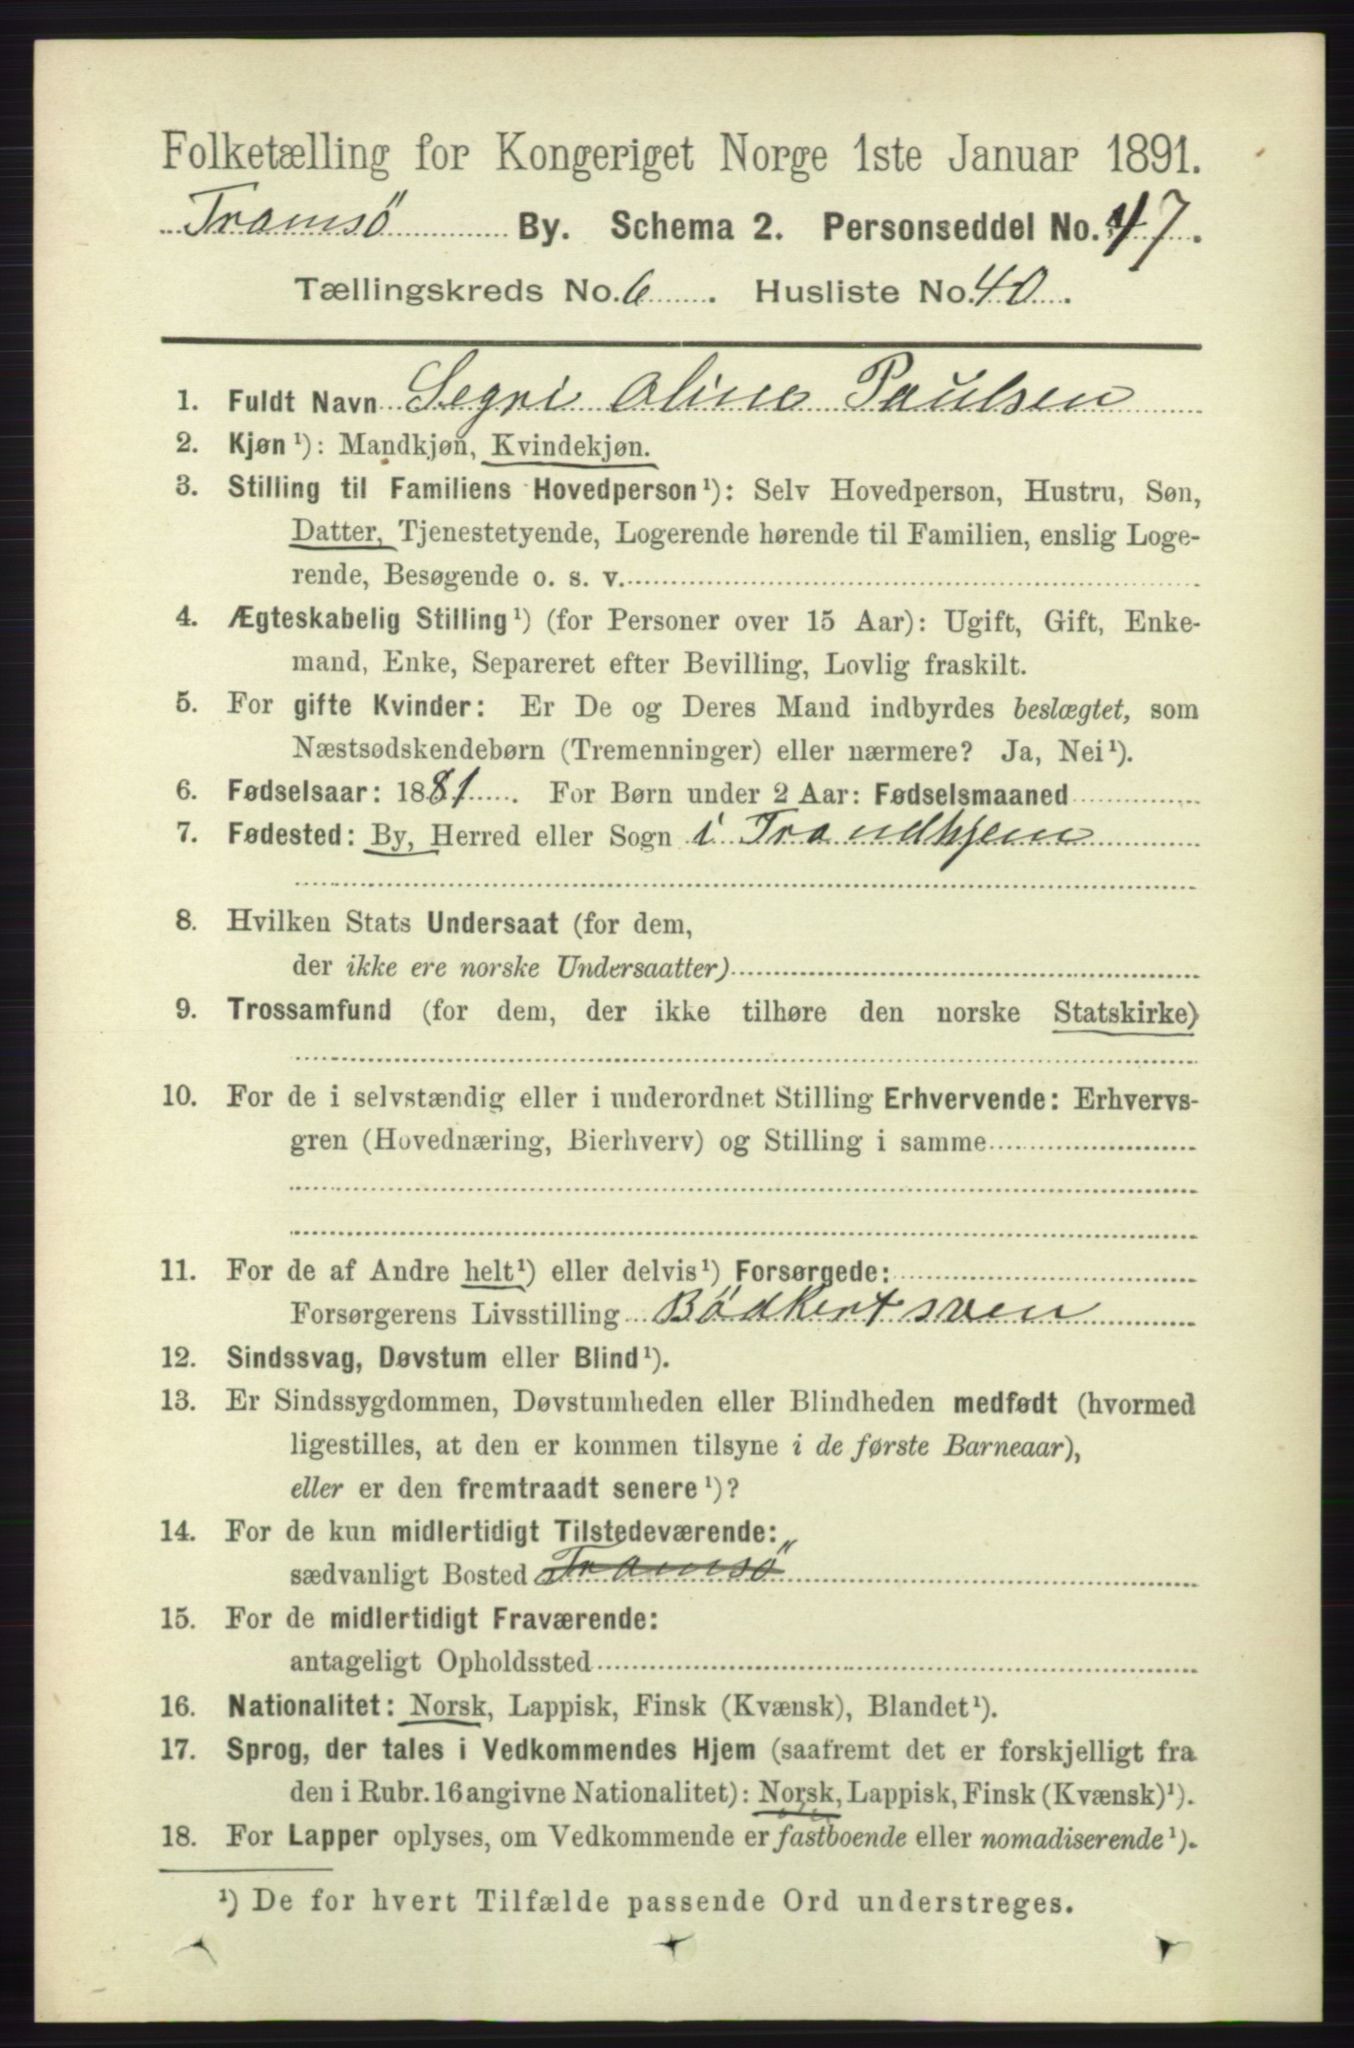 Folketælling for Kongeriget Norge 1ste Januar 1891.
Tromsö By. Schema 2. Personseddel No. 47.
Tællingskreds No. 6. Husliste No. 40.
1. Fuldt Navn Segri Oline Paulsen
2. Kjøn¹): Mandkjøn, Kvindekjøn.
3. Stilling til Familiens Hovedperson¹): Selv Hovedperson, Hustru, Søn,
Datter, Tjenestetyende, Logerende hørende til Familien, enslig Loge-
rende, Besøgende o. s. v.
4. Ægteskabelig Stilling¹) (for Personer over 15 Aar): Ugift, Gift, Enke-
mand, Enke, Separeret efter Bevilling, Lovlig fraskilt.
5. For gifte Kvinder: Er De og Deres Mand indbyrdes beslægtet, som
Næstsødskendebørn (Tremenninger) eller nærmere? Ja, Nei¹).
6. Fødselsaar: 1881. For Børn under 2 Aar: Fødselsmaaned
7. Fødested: By, Herred eller Sogn i Trondhjem
8. Hvilken Stats Undersaat (for dem,
der ikke ere norske Undersaatter)
9. Trossamfund (for dem, der ikke tilhøre den norske Statskirke)
10. For de i selvstændig eller i underordnet Stilling Erhvervende: Erhvervs-
gren (Hovednæring, Bierhverv) og Stilling i samme
11. For de af Andre helt¹) eller delvis¹) Forsørgede:
Forsørgerens Livsstilling Bödkersven
12. Sindssvag, Døvstum eller Blind¹).
13. Er Sindssygdommen, Døvstumheden eller Blindheden medfødt (hvormed
ligestilles, at den er kommen tilsyne i de første Barneaar),
eller er den fremtraadt senere¹)?
14. For de kun midlertidigt Tilstedeværende:
sædvanligt Bosted Tromsö "
15. For de midlertidigt Fraværende:
antageligt Opholdssted
16. Nationalitet: Norsk, Lappisk, Finsk (Kvænsk), Blandet¹).
17. Sprog, der tales i Vedkommendes Hjem (saafremt det er forskjelligt fra
den i Rubr. 16 angivne Nationalitet): Norsk, Lappisk, Finsk (Kvænsk)¹).
18. For Lapper oplyses, om Vedkommende er fastboende eller nomadiserende¹).
¹) De for hvert Tilfælde passende Ord understreges.